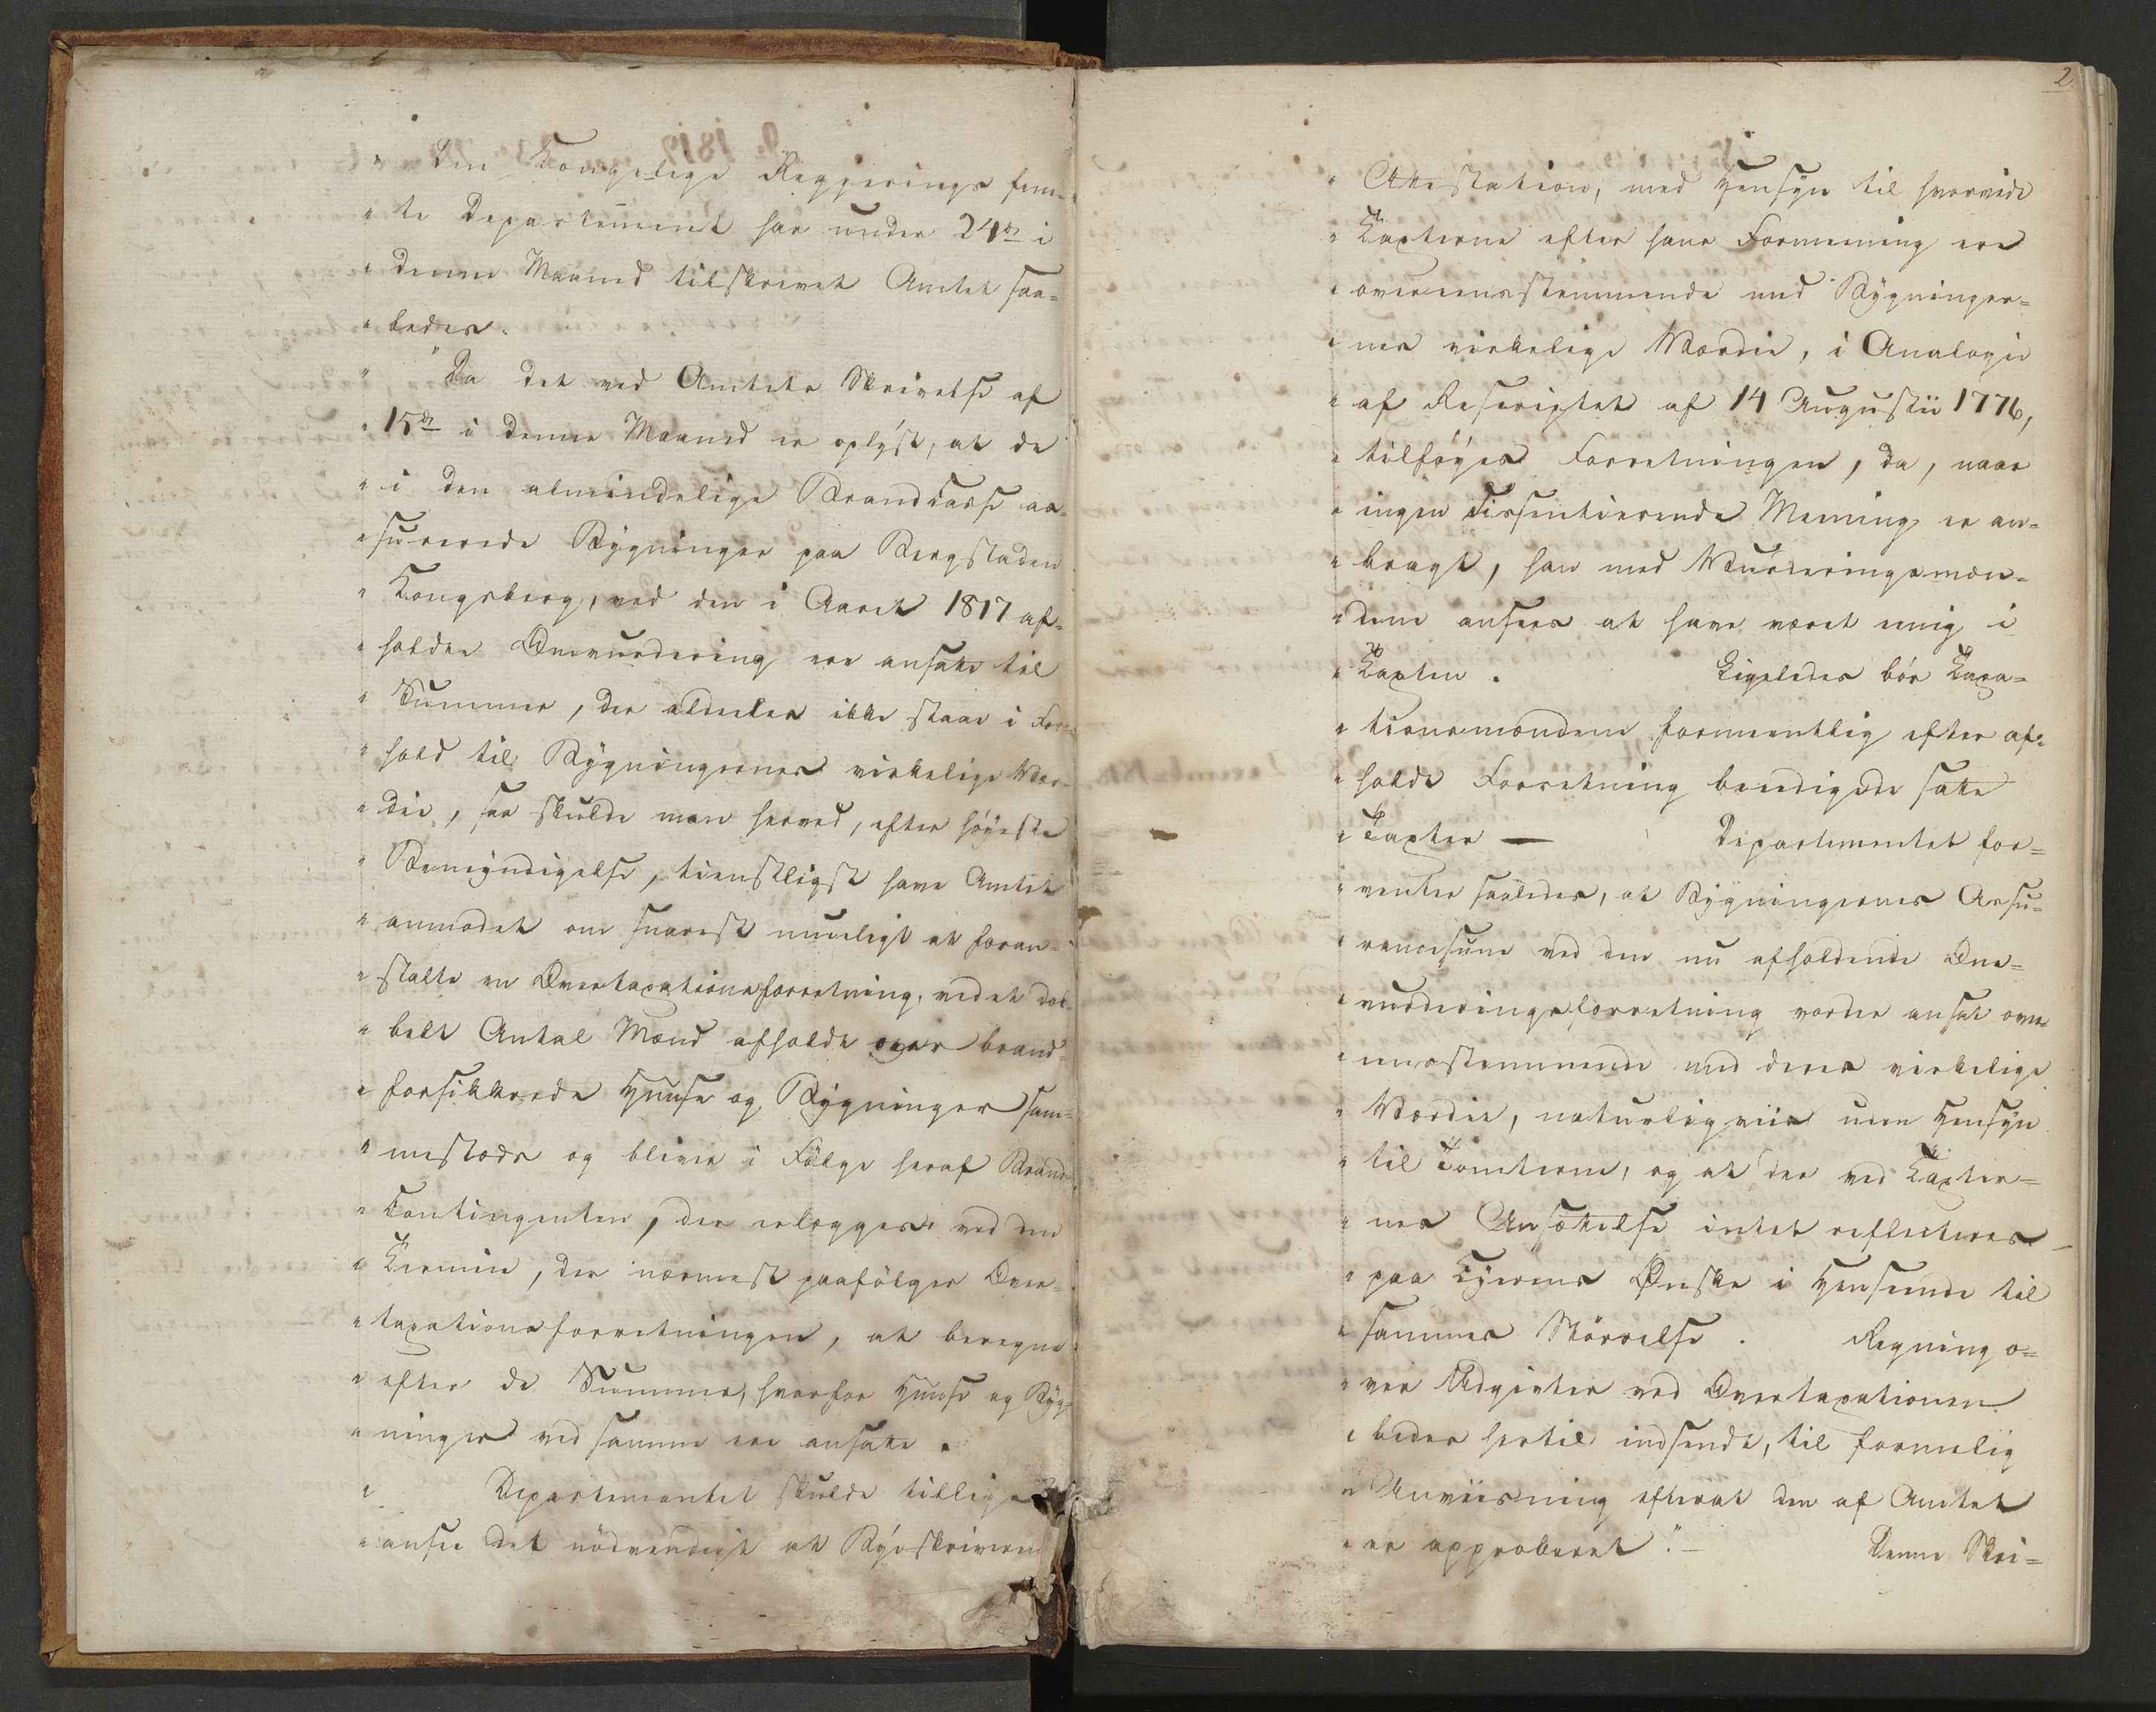 " Den Kongelige Regjerings fem-
" te Departement har under 24de i
" denne Maaned tilskrevet Amtet saa-
" ledes.
" "Da det ved Amtets Skrivelse af
" 15de i denne Maaned er oplyst, at de
" i den almindelige Brandcasse as-
" surerede Bygninger paa Bergstaden
" Kongsberg, ved den i Aaret 1817 af-
" holdte Omvurdering ere ansatte til
" Summer, der aldeles ikke staae i For-
" hold til Bygningernes virkelige Vær-
" die, saa skulde man herved, efter höyeste
" Bemyndigelse, tienstligst have Amtet
" anmodet om snarest mueligt at foran-
" stalte en Overtaxationsforretning, ved et dob-
" belt Antal Mænd afholdt over brand-
" forsikkrede Huuse og Bygninger sam-
" mestæds og blive i Fölge heraf Brand-
" Contingenten, der erlægges ved den
" Termin, der nærmest paafölger Over-
" taxationsforretningen, at beregne
" efter de Summer, hvorfor Huuse og Byg-
" ninger ved samme ere ansatte.
" Departementet skulde tillige
" ansee det nödvendigt at Byeskriverens
2.
" Attestation, med Hensyn til hvorvidt
" Taxterne efter hans Formening ere
" overeensstemmende med Bygninger-
" nes virkelige Værdie, i Analogie
" af Rescriptet af 14 Augustii 1776,
" tilföyes Forretningen, da, naar
" ingen dissentierende Mening er an-
" bragt, han med Vurderingsmæn-
" dene ansees at have været enig i
" Taxten. Ligeledes bör Taxa-
" tionsmændene formeentlig efter af-
" holdt Forretning beedigede satte
" Taxter — Departementet for-
" venter saaledes, at Bygningernes Assu-
" rancesum ved den nu afholdende Om-
" vurderingsforretning vorder ansat over-
" eensstemmende med deres virkelige
" Værdie, naturligviis uden Hensyn
" til Tomterne, og at der ved Taxter-
" nes Ansættelse intet reflecteres
" paa Eyerens Önske i Henseende til
" sammes Störrelse. Regning o-
" ver Udgivter ved Overtaxationen
" bedes hertil indsendt, til formelig
" Anviisning efterat den af Amtet
" er approberet." — Denne Skri-